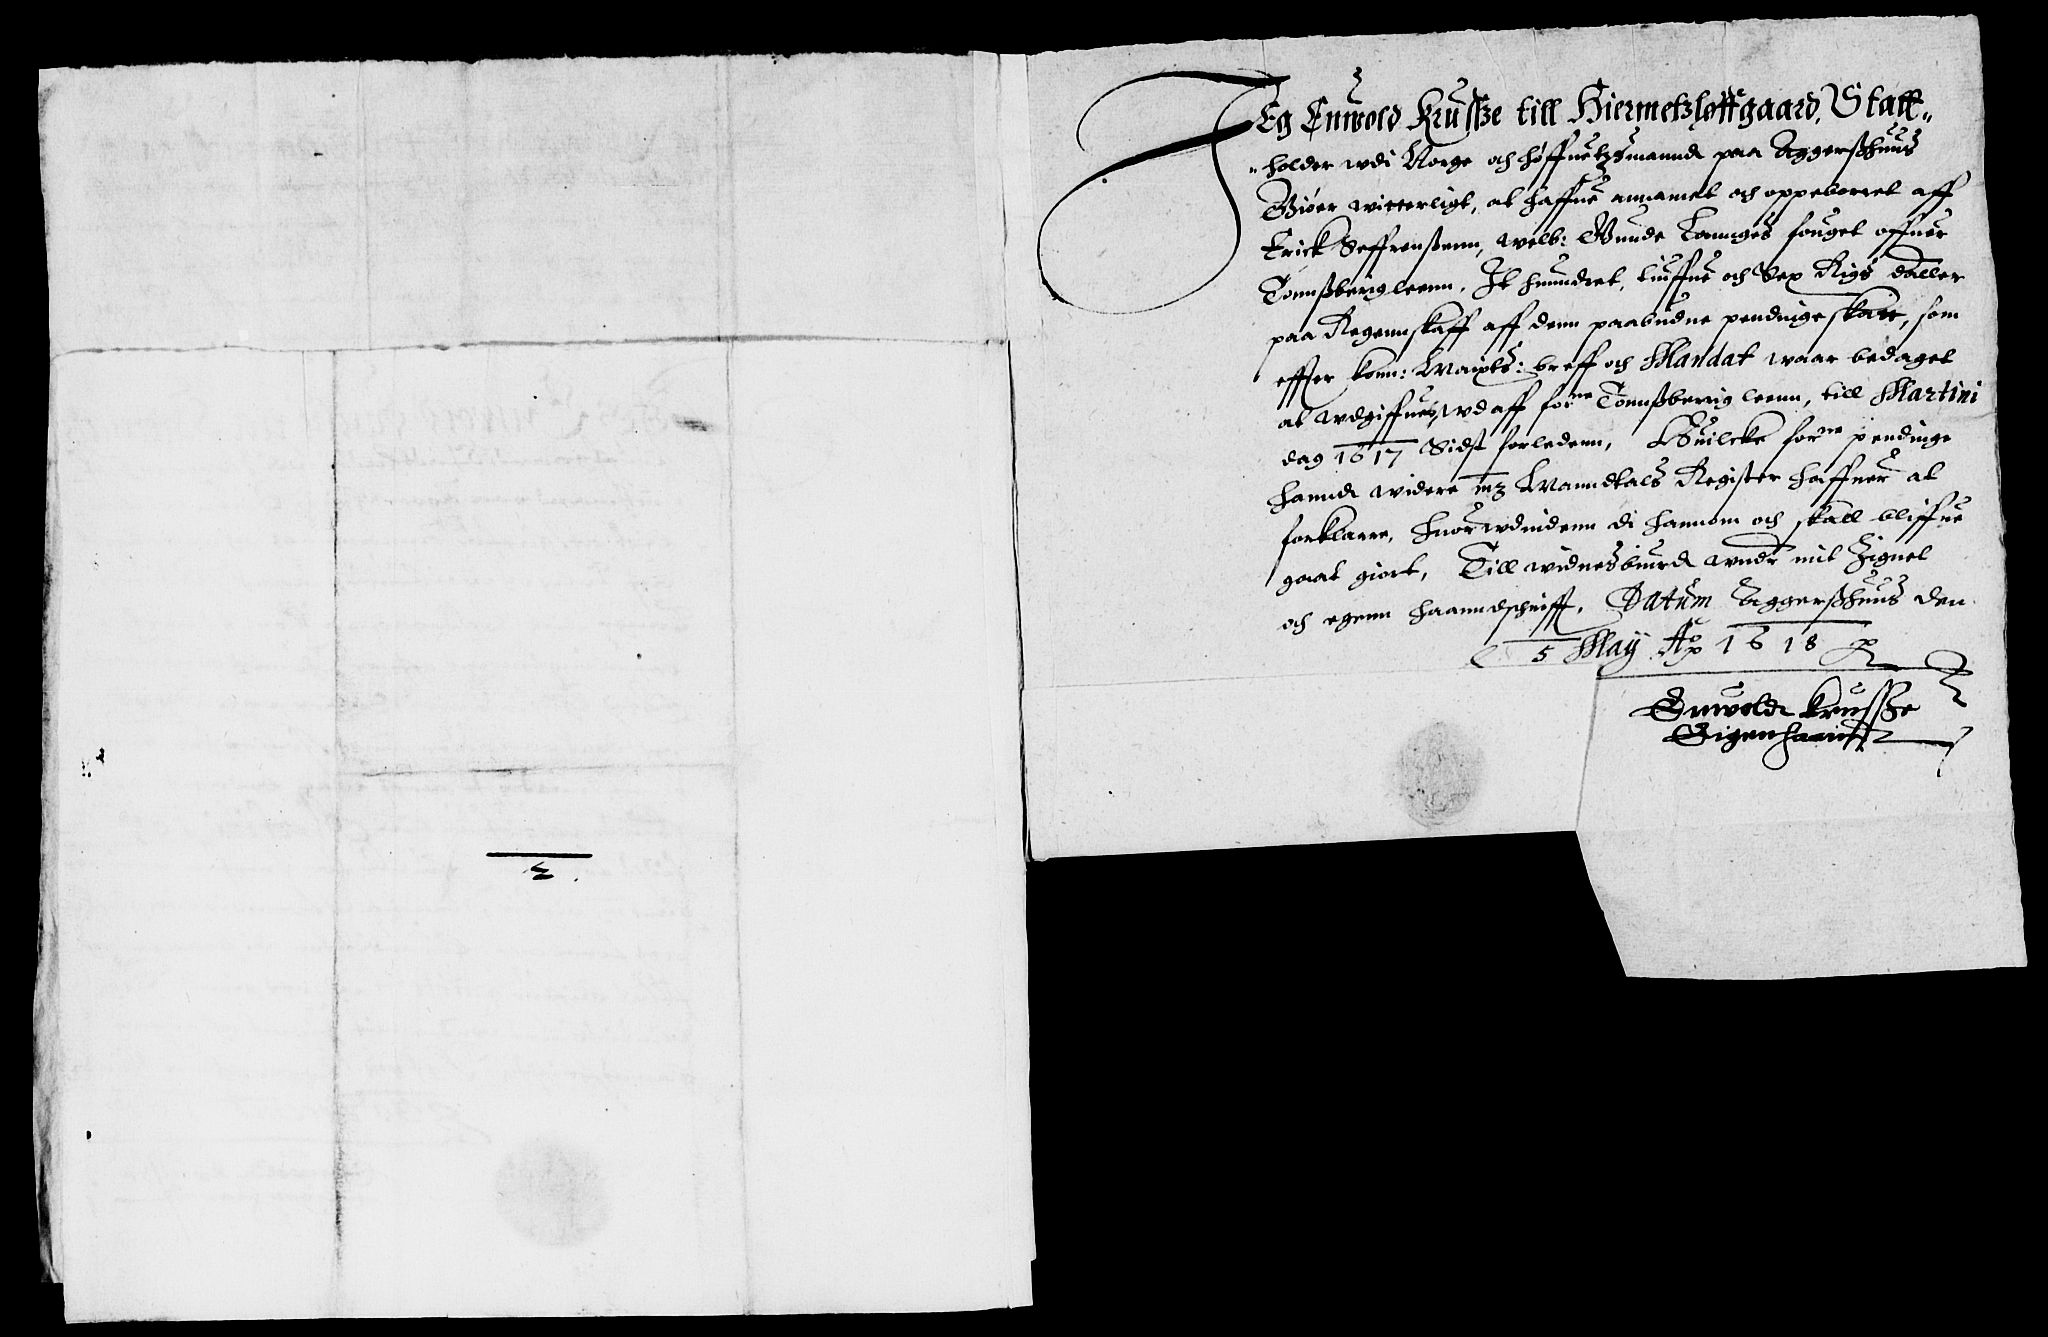 Jeg Enwold Krusse till Hiermetzløffgaard, Statt-
holder wdi Norge och høffuetzmannd paa Aggershuus
Giører witterligt, at haffue annamet och oppeborret aff
Erick Seffrenßenn, welb: Gunde Lannges fouget offuer
Tonnßberigleenn, It huundret, tiuffue och Sex Rigs daller
paa Regennskaff aff denn paabudne pendinge skatt, som
effter konn: Maiytts: breff och Mandat waar bedaget
at wdgiffues, wd aff forne Tonnßberrig leenn, till Martini
dag 1617 Sidst forledenn, Huilcke forne pendinge
hannd widere mz Manndtals Register haffuer at
forklarre, huor wdindenn di hannom och skall bliffue
gaat giort, Till widnesbiurd wnder mit Zignet
och egenn haanndschrifft, Datum Aggershuus den
5 Maij Ao 1618
Enwold Krusse
Eigen haandt